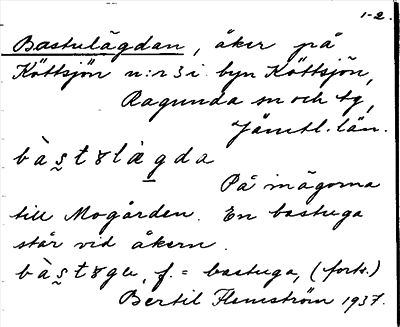 1-2.
Bastulägdan, åker på
Köttsjön n:r 3 i byn Köttsjön,
Ragunda sn och tg,
Jämtl. län.
bàs̰tɤlàgda
På inägorna
till Mogården. En bastuga
står vid åkern.
bàs̰tɤgu, f. = bastuga, (forts.)
Bertil Flemström 1937.